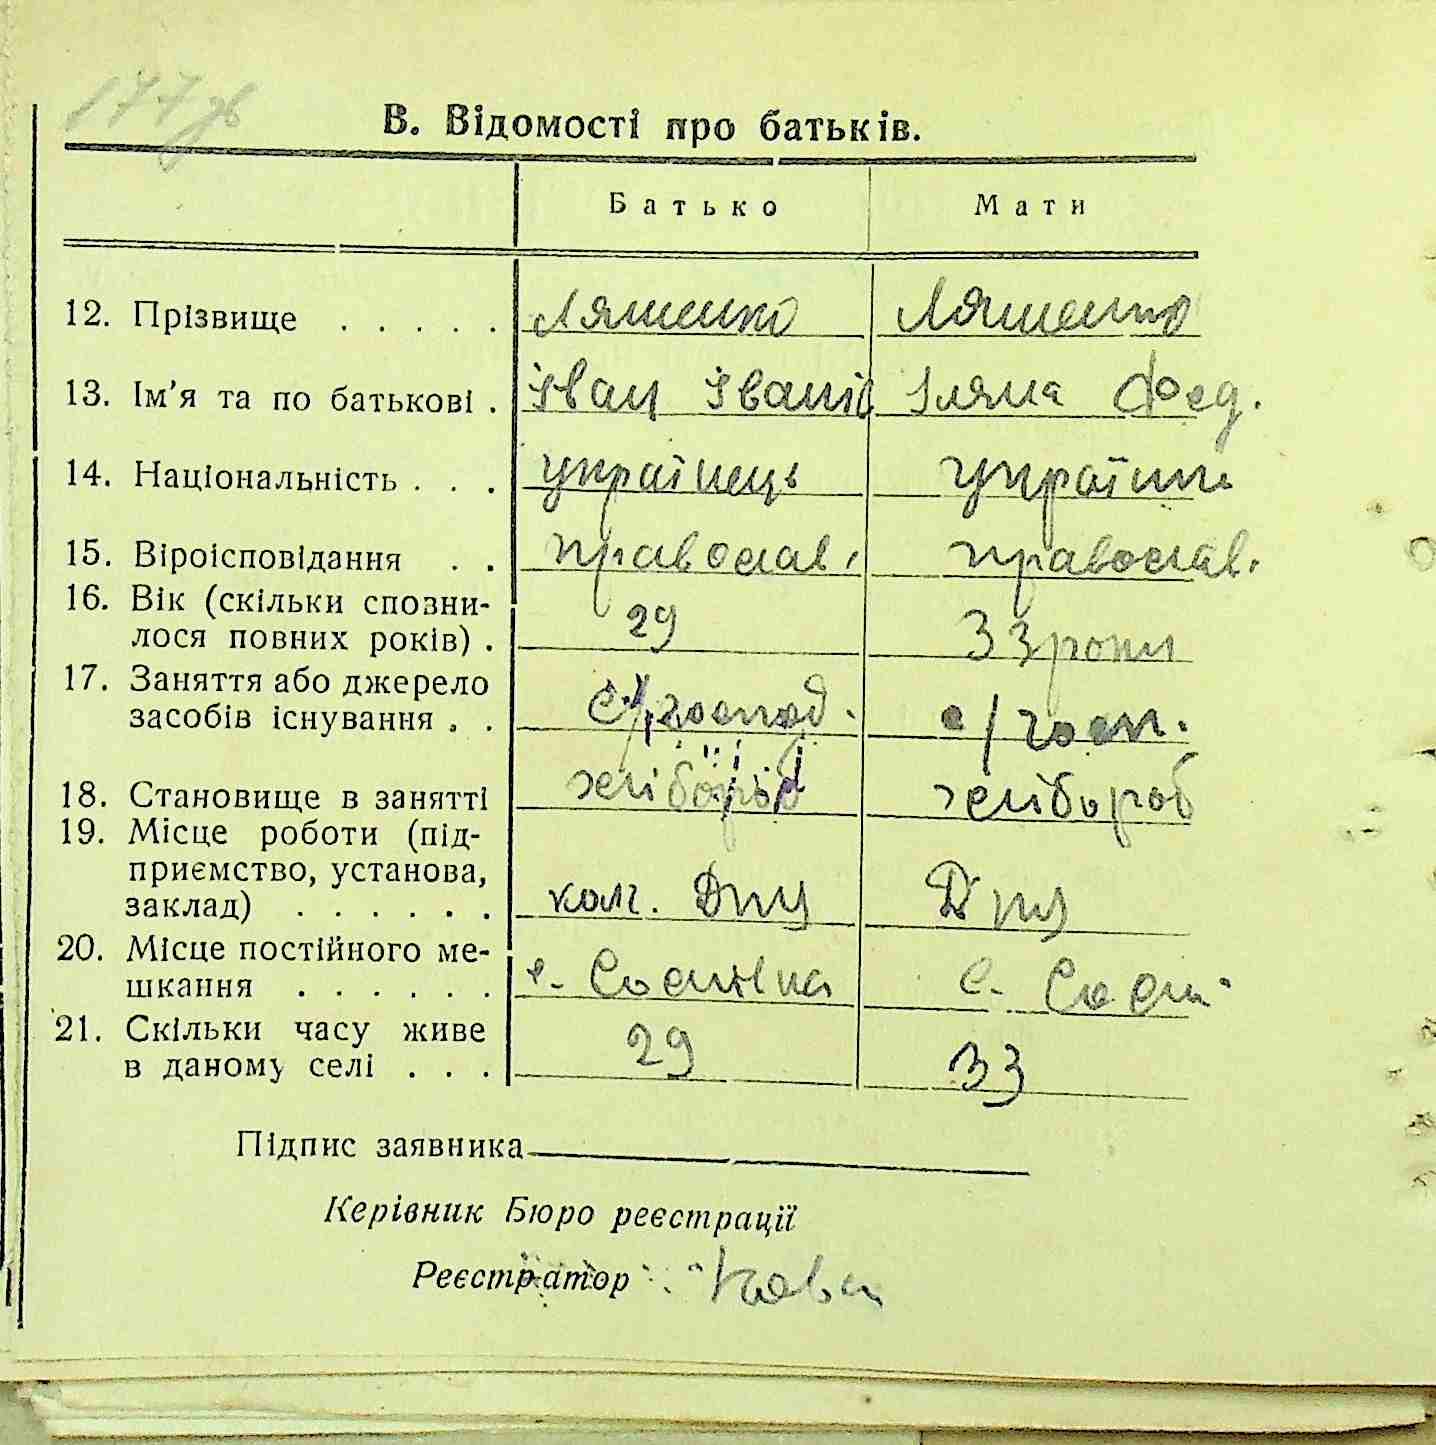 177 зв
В. Відомості про батьків.
Батько Мати
12. Прізвище . . . . . Ляшенко Ляшенко
13. Ім'я та по батькові . Іван Іваніс Іляна Фед.
14. Національність . . . українець українк
15. Віроісповідання . . православ. православ.
16. Вік (скільки сповни-
лося повних років) . 29 33 роки
17. Заняття або джерело
засобів існування . . с/господ. с/госп.
18. Становище в занятті хлібороб хлібороб
19. Місце роботи (під-
приємство, установа,
заклад) . . . . . . колг.
20. Місце постійного ме-
шкання . . . . . . с. Соснівка с. Сосн.
21. Скільки часу живе
в даному селі . . . 29 33
Підпис заявника
Керівник Бюро реєстрації
Реєстратор